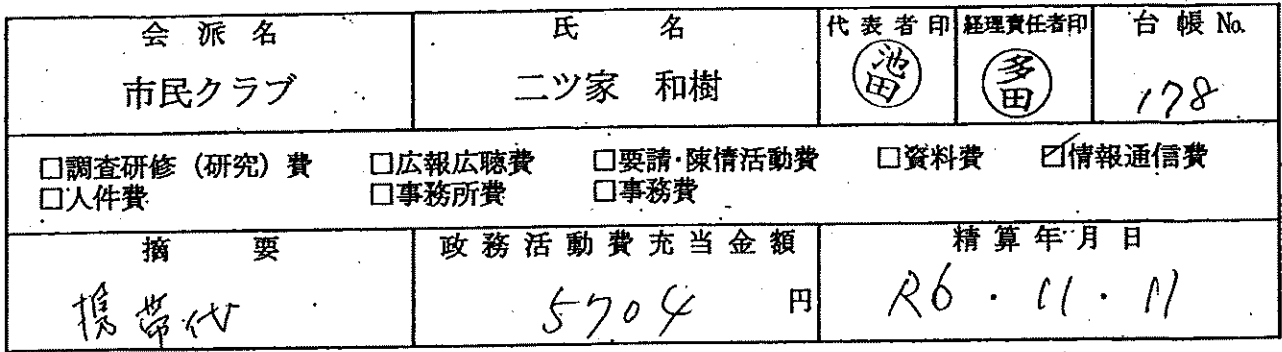 会派名 氏名 代表者印 経理責任者印 台帳No.
市民クラブ 二ツ家 和樹 池田 多田 178
□調査研修（研究）費 □広報広聴費 □要請・陳情活動費 □資料費 ☑情報通信費
□人件費 □事務所費 □事務費
摘要 政務活動費充当金額 精算年月日
携帯代 5704 円 R6・11・11